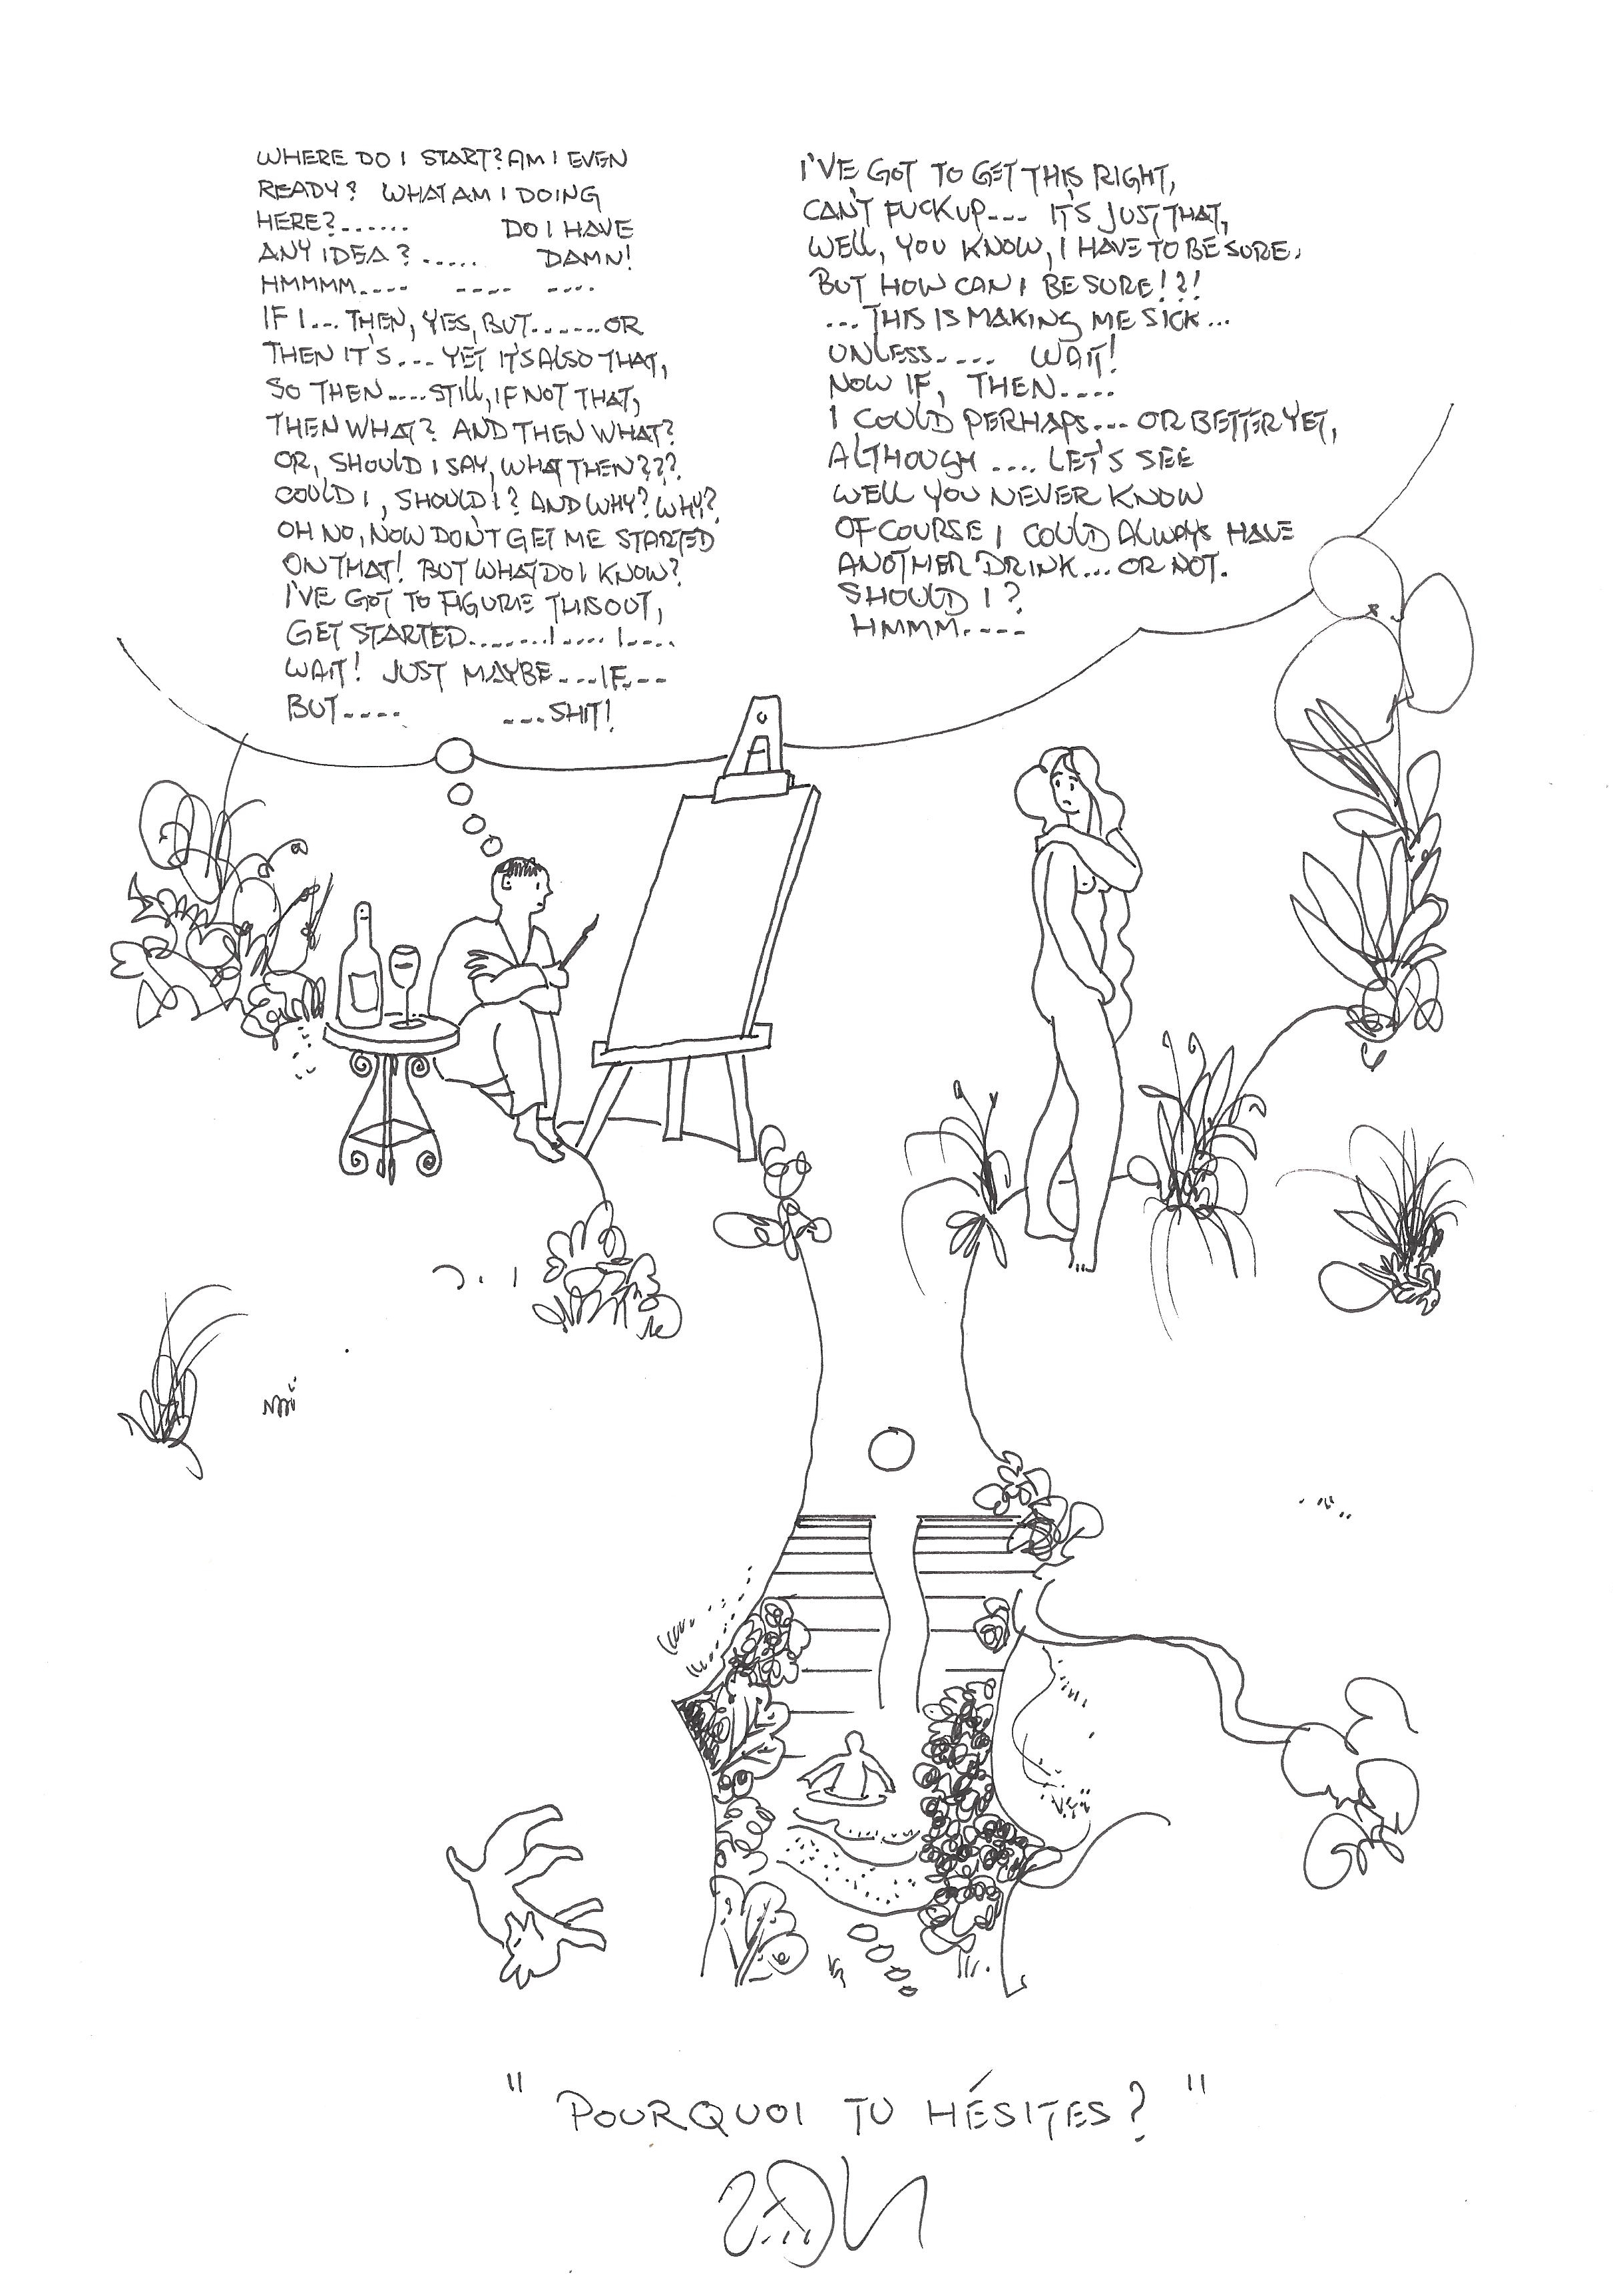 WHERE DO I START? AM I EVEN
READY? WHAT AM I DOING
HERE?...... DO I HAVE
ANY IDEA?..... DAMN!
HMMMM.... .... ....
IF I... THEN, YES, BUT.......OR
THEN IT'S... YET IT'S ALSO THAT,
SO THEN....STILL, IF NOT THAT,
THEN WHAT? AND THEN WHAT?
OR, SHOULD I SAY, WHAT THEN???
COULD I, SHOULD I? AND WHY? WHY?
OH NO, NOW DON'T GET ME STARTED
ON THAT! BUT WHAT DO I KNOW?
I'VE GOT TO FIGURE THIS OUT,
GET STARTED........!.....!....
WAIT! JUST MAYBE...IF...
BUT.... ...SHIT!
I'VE GOT TO GET THIS RIGHT,
CAN'T FUCK UP... IT'S JUST THAT,
WELL, YOU KNOW, I HAVE TO BE SURE,
BUT HOW CAN I BE SURE!?!
...THIS IS MAKING ME SICK...
UNLESS.... WAIT!
NOW IF, THEN....
I COULD PERHAPS... OR BETTER YET,
ALTHOUGH.... LET'S SEE
WELL YOU NEVER KNOW
OF COURSE I COULD ALWAYS HAVE
ANOTHER DRINK... OR NOT.
SHOULD I?
HMMM....
"POURQUOI TU HÉSITES?"